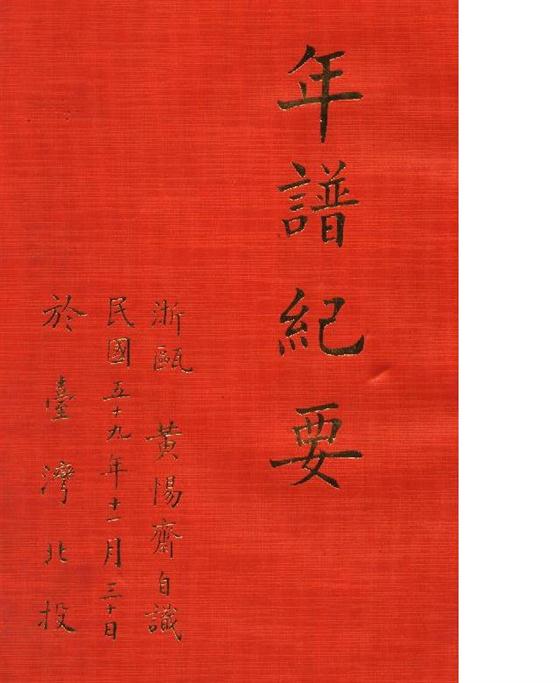 年譜紀要
浙甌 黃陽齋自識
民國五十九年十一月三十日
於臺灣北投